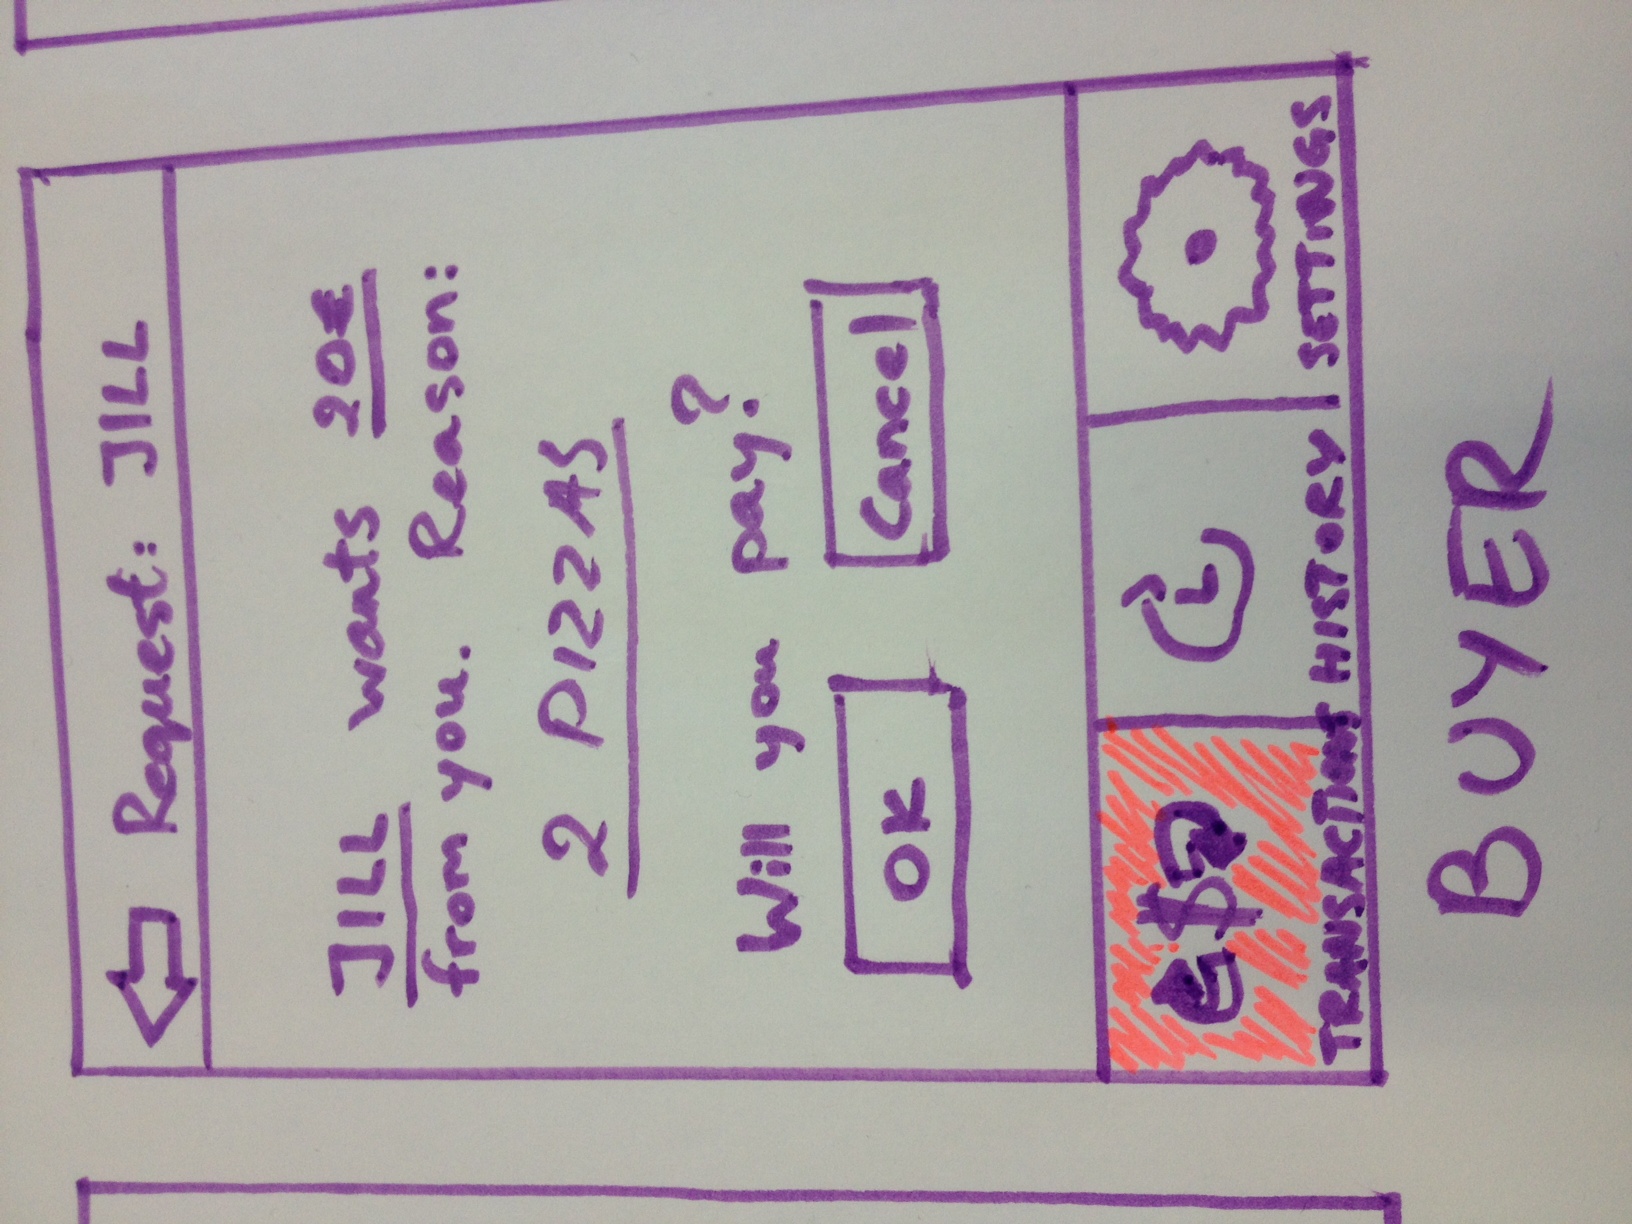 Request: JILL
JILL wants 20€
from you. Reason:
2 PIZZAS
Will you pay?
OK Cancel
$
TRANSACTIONS HISTORY SETTINGS
BUYER